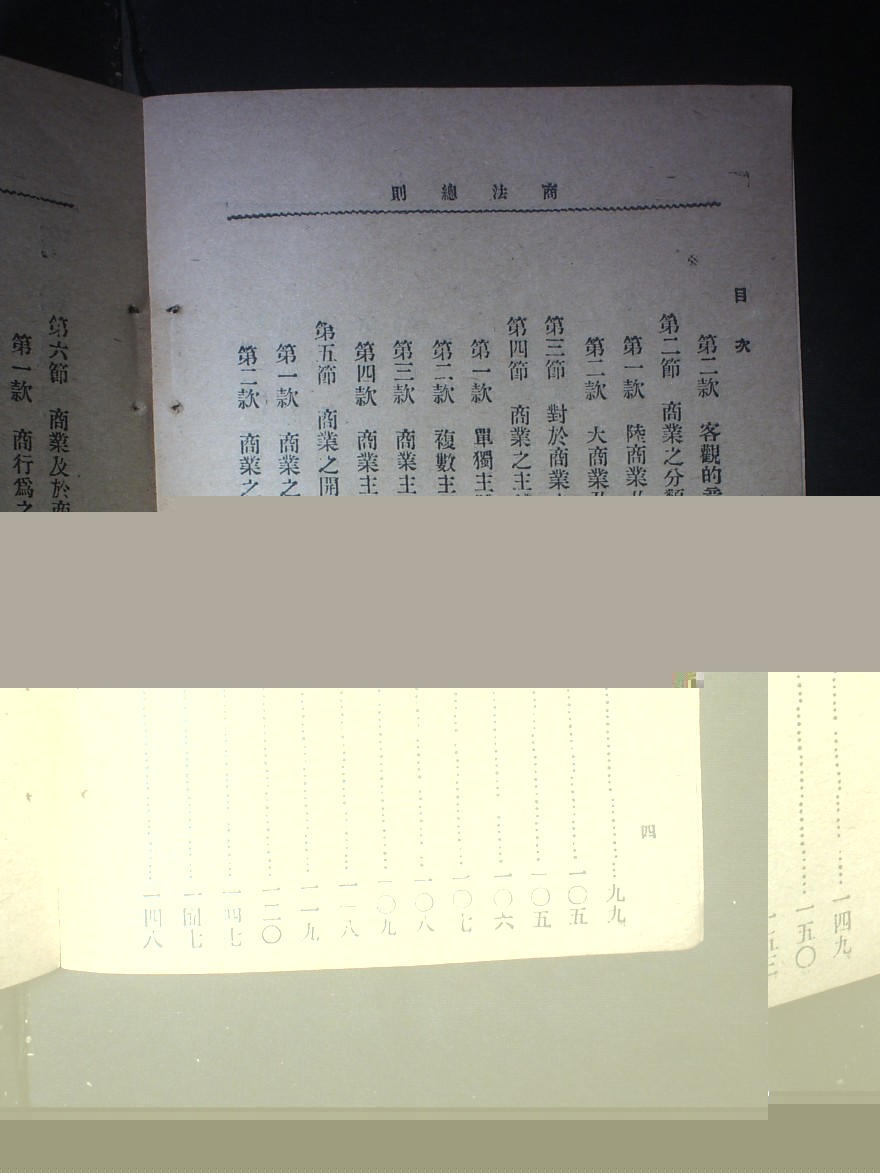 商法總則
目次
第二款　客觀的
第二節　商業之分類
第一款　陸商業
第二款　大商業
第三節　對於商業
第四節　商業之主
第一款　單獨主
第二款　複數主
第三款　商業主
第四款　商業主
第五節　商業之開
第一款　商業之
第二款　商業之
第六節　商業及於商
第一款　商行爲之
四
九九
一〇五
一〇五
一〇六
一〇七
一〇八
一〇九
一一八
一一九
一二〇
一四七
一四七
一四八
一四九
一五〇